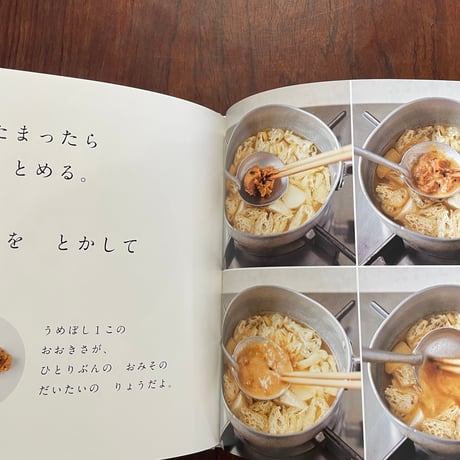 たまったら
とめる。
を　とかして
うめぼし1この
おおきさが、
ひとりぶんの　おみその
だいたいの　りょうだよ。